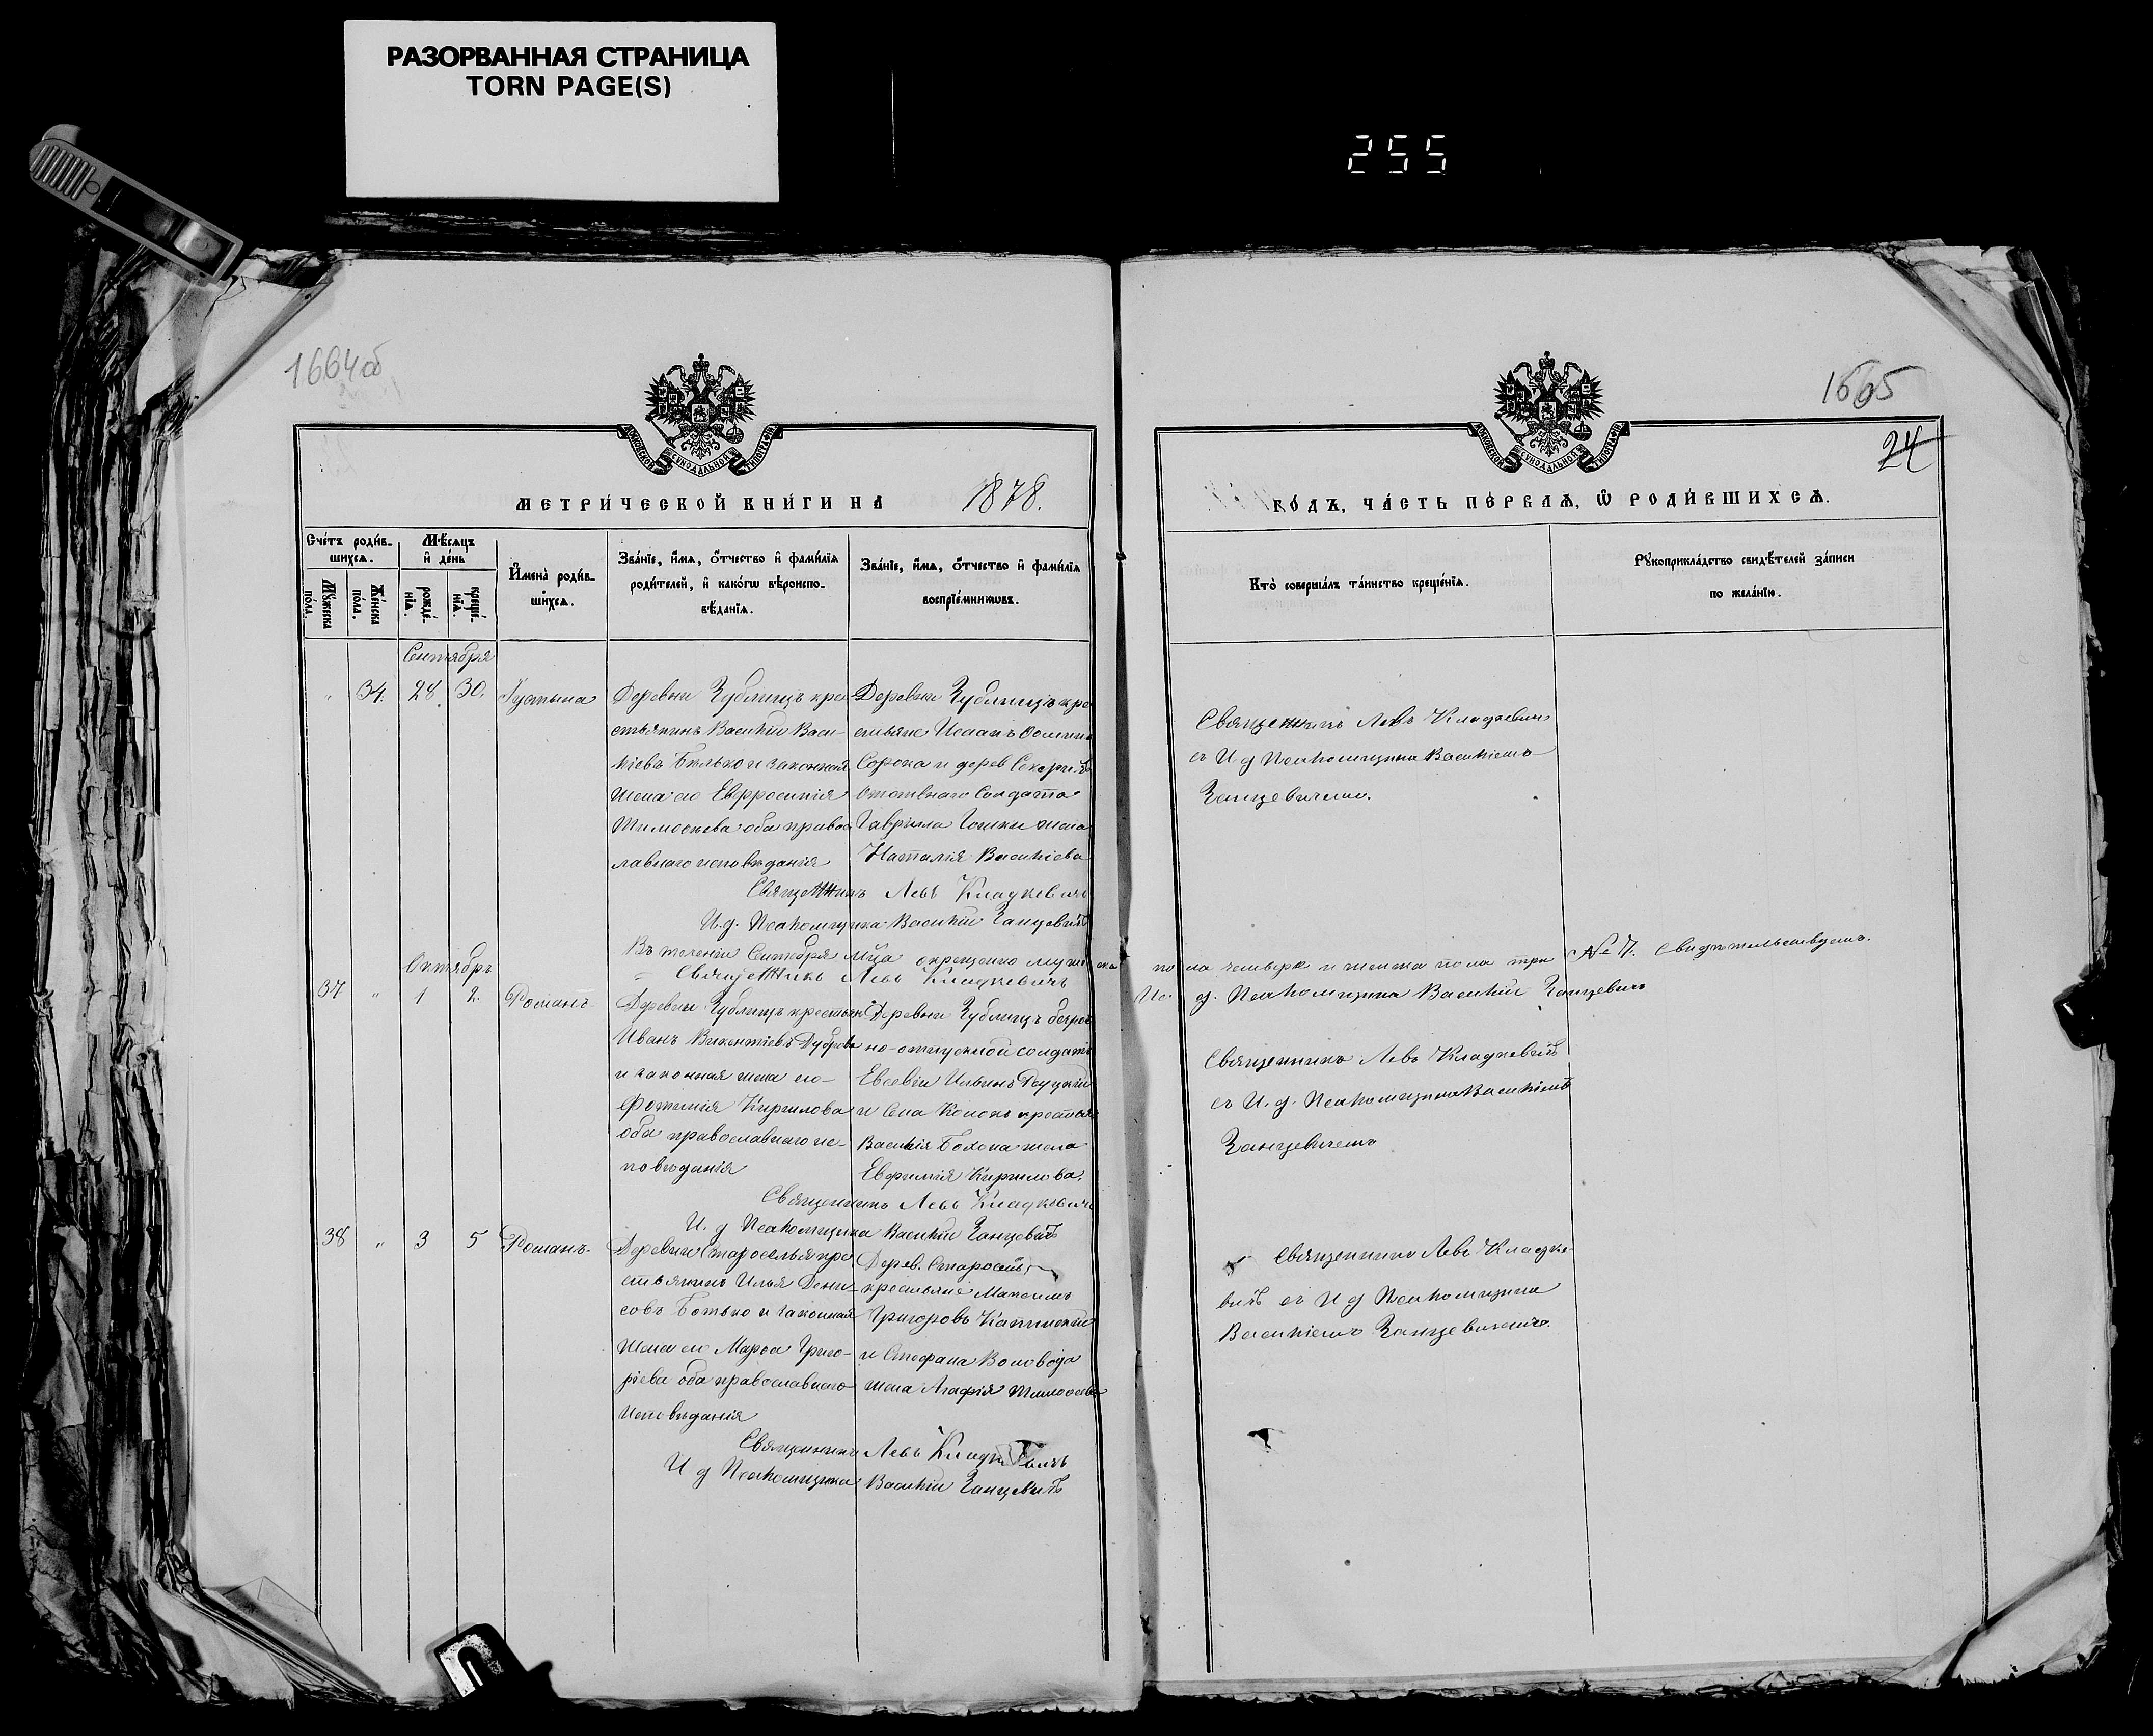 РАЗОРВАННАЯ СТРАНИЦА
TORN PAGE(S)
255
1664об
1665
24
МОСКОВСКОЙ СУНОДАЛЬНОЙ ТИПОГРАФІИ
МОСКОВСКОЙ СУНОДАЛЬНОЙ ТИПОГРАФІИ
МЕТРИ́ЧЕСКОЙ КНИ́ГИ НА 1878.
ГО́ДЪ, ЧА́СТЬ ПЕ́РВАѦ, Ѽ РОДИ́ВШИХСѦ.
Сче́тъ роди́в-
шихсѧ.
Мꙋ́жеска по́ла.
Же́нска по́ла.
Мѣ́сѧцъ
и҆ де́нь
рожде́-
нїѧ.
креще́-
нїѧ.
И҆мена̀ роди́в-
ши́хсѧ.
Зва́нїе, и҆́мѧ, ѻ҆́тчество и҆ фами́лїѧ
роди́телей, и҆ како́гѡ вѣроиспо-
вѣ́данїѧ.
Зва́нїе, и҆́мѧ, ѻ҆́тчество и҆ фами́лїѧ
воспрїе́мникѡвъ.
Кто̀ соверша́лъ та́инство креще́нїѧ.
Рꙋкоприкла́дство свидѣ́телей за́писи
по жела́нїю.
Сентября
" 34. 28 30. Іустина
Деревни Зублищъ кре-
стьянинъ Василій Васи-
ліевъ Бялько и законная
жена его Евфросинія
Тимоѳеева оба правос
лавнаго исповѣданія
Деревни Зублищъ кре
стьяне Исаакъ Ѳоминъ
Сорока и дерев
отставнаго солдата
Гавріила жена
Наталія Василіева
Священникъ Левъ Кладкевичъ
съ И д Псаломщика Василіемъ
Занцевичемъ.
Священникъ Левъ Кладкевичъ
И. д. Псаломщика Василій Занцевичъ
Въ теченіи Сентября м͠ца окрещено мужеска пола четыре и женска пола три № 7. свидѣтельствуемъ.
Священникъ Левъ Кладкевичъ
Ис. д. Псаломщика Василій Занцевичъ
Октябрь
37 " 1 2. Романъ
Деревни Зублищъ крестьян
Иванъ Викентіевъ
и законная жена его
Фотинія Кирилова
оба православнаго ис-
повѣданія
Деревни Зублищъ безроч
но-отпускной солдатъ
Евсевій Ильинъ
и села
Василія жена
Евфимія Кирилова.
Священникъ Левъ Кладкевичъ
съ И. д. Псаломщика Василіемъ
Занцевичемъ
Священникъ Левъ Кладкевичъ
И. д Псаломщика Василій Занцевичъ
38 " 3 5 Романъ
Деревни Староселья кре
стьянинъ Илья Дени-
совъ Ботько и законная
жена его Марѳа Григо-
ріева оба православнаго
исповѣданія
Дерев. Староселья
крестьяне Максимъ
Григоровъ
и Стефана Воловода
жена Агафія Тимоѳеева
Священникъ Левъ Кладке-
вичъ съ И д Псаломщика
Василіемъ Занцевичемъ.
Священникъ Левъ Кладкевичъ
И д Псаломщика Василій Занцевичъ